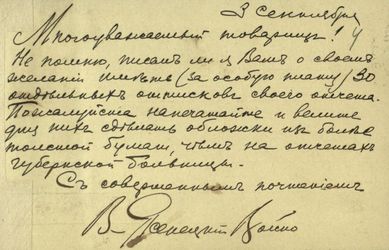 3 сентября
Многоуважаемый товарищъ!
Не помню, писалъ ли я Вамъ о своемъ
желаніи имѣть (за особую плату) 30
отдѣльныхъ оттисковъ своего отчета.
Пожалуйста напечатайте и велите
для нихъ сдѣлать обложки изъ болѣе
толстой бумаги, чѣмъ на отчетахъ
губернской больницы.
Съ совершеннымъ почтеніемъ
В. Ясенецкій Войно